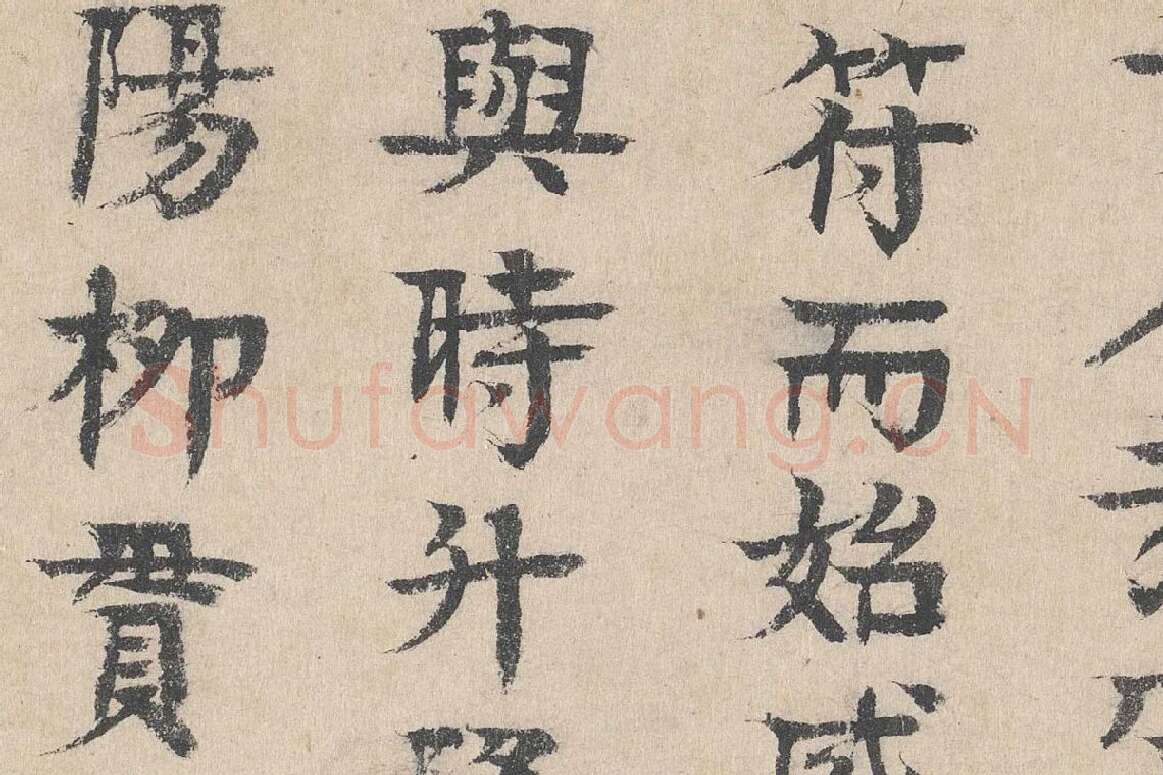 符而始感
與時升
陽柳貫
Shufawang.CN